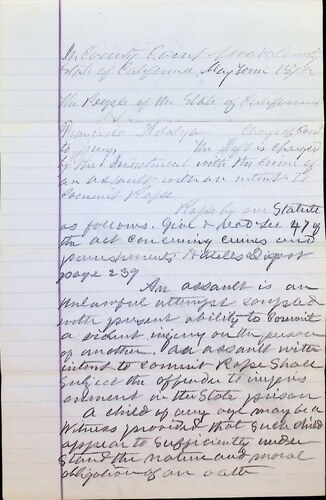 In County Court County
State of California May Term 187
The People of the State of California
Francisco Charge of Court
to Jury. The Deft is charged
by the Indictment with the crime of
an assault with an intent to
commit Rape
Rape by our Statute
as follows. Give & read Sec 47 of
the act concerning crimes and
punishments Digest
page 239
An assault is an
unlawful attempt coupled
with present ability to commit
a violent injury on the person
of another. An assault with
intent to commit Rape Shall
Subject the offender to impris
onment in the State prison
A child of any age may be a
witness provided that Such child
appear to Sufficiently under
Stand the nature and moral
obligation of an oath